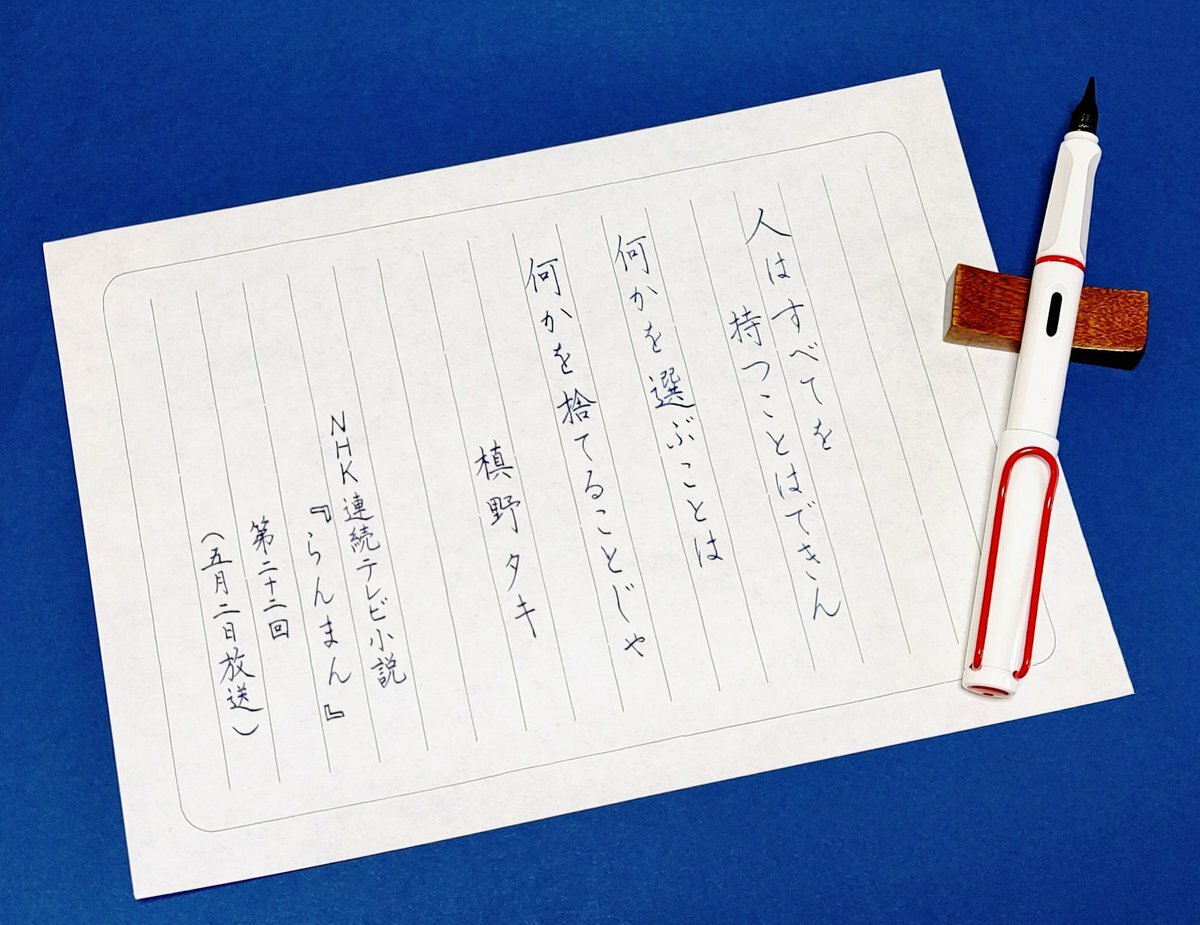 人はすべてを
持つことはできん
何かを選ぶことは
何かを捨てることじゃ
槙野タキ
NHK連続テレビ小説
『らんまん』
第二十二回
(五月二日放送)